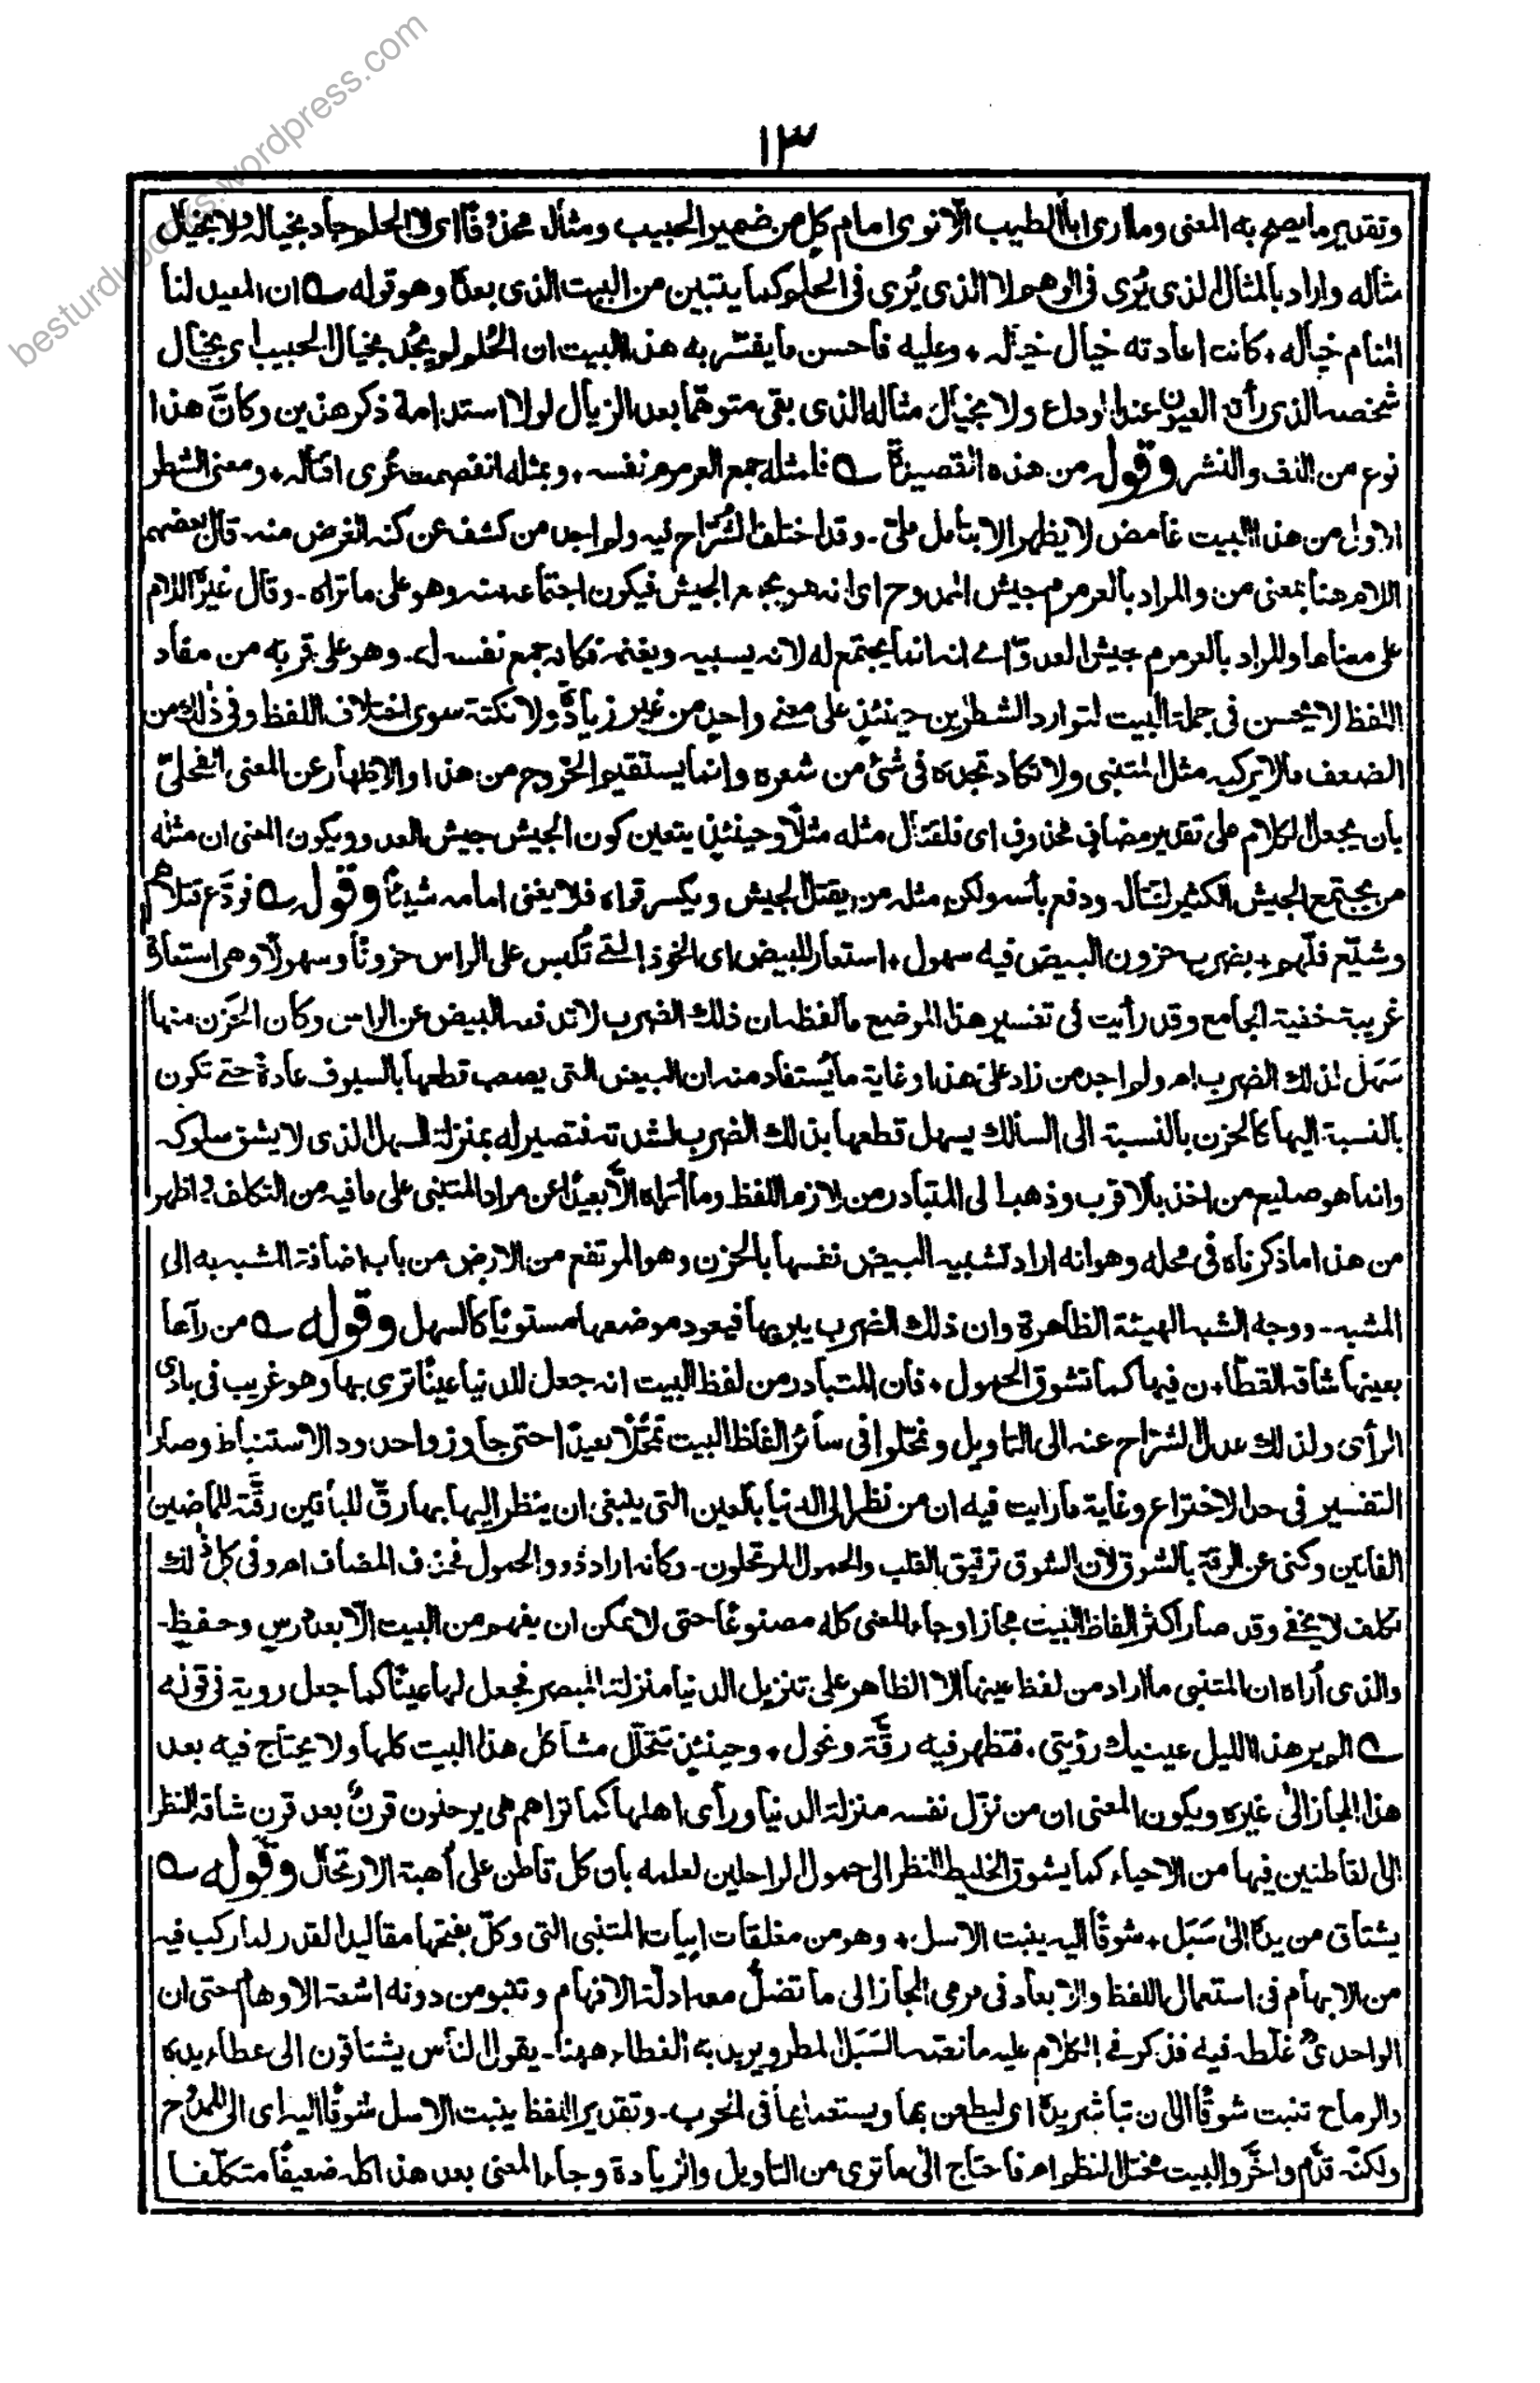 besturdubooks.wordpress.com
١٣
وتقدير ما يصح به المعنى وما ارى ابا الطيب الّا نوى امام كل من ضمير الحبيب ومثال محذوفًا اى لا الحلم جاد بخياله ولا بخيال
مثاله واراد بالمثال الذى يُرى فى الوهم لا الذى يُرى فى الحلم كما يتبين من البيت الذى بعدهٗ وهو قوله ؎ ان المعيد لنا
المنام خياله ٭ كانت اعادته خيال خياله ٭ وعليه فاحسن ما يفسّر به هذا البيت ان الحُلم لم يجُد بخيال الحبيب اى بخيال
شخصه الذى رأته العيون عند الوداع ولا بخيال مثاله الذى بقى متوهّما بعد الزيال لولا استدامة ذكر هذين وكانَّ هذا
نوع من اللف والنشر وقوله من هذه القصيدة ؎ فلمثله جمع العرمرم نفسه ٭ وبمثله انفصمت عُرى اقتاله ٭ ومعنى الشطر
الاول من هذا البيت غامض لا يظهر الا بتأمل ملىّ ۔ وقد اختلف الشُّرّاح فيه ولم اجد من كشف عن كنه الغرض منه ۔ قال بعضهم
اللام هنا بمعنى من والمراد بالعرمرم جيش الممدوح اى انه هو يجمع الجيش فيكون اجتماعه منه وهو على ما تراه ۔ وقال غيرهٗ اللام
على معناها والمراد بالعرمرم جيش العدوّ اے انه انما يجتمع له لانه يسبيه ويغنمه فكانه جمع نفسه له ۔ وهو على قربه من مفاد
اللفظ لا يحسن فى جملة البيت لتوارد الشطرين حينئذٍ على معنے واحدٍ من غير زيادةٍ ولا نكتة سوى اختلاف اللفظ وفى ذلك من
الضعف ما لا يركبه مثل المتنبى ولا تكاد تجدهٗ فى شئ من شعره وانما يستقيم الخروج من هذا والاظهار عن المعنى الفحلىّ
بان يجعل الكلام على تقدير مضافٍ محذوفٍ اى فلقتال مثله مثلًا وحينئذٍ يتعين كون الجيش جيش العدو ويكون المعنى ان مثله
من يجتمع الجيش الكثير لقتاله ودفع بأسه ولكن مثله من يقتل الجيش ويكسر قواه فلا يغنى امامه شيئًا وقوله ؎ نودّع قتلاهم
وشيّع فلّهم ٭ بضرب حزون البيض فيه سهول ٭ استعار للبيض اى الخوذ التے تُلبس على الراس حزونًا وسهولًا وهى استعارة
غريبة خفية الجامع وقد رأيت فى تفسير هذا الموضع ما لفظه ان ذلك الضرب لا تدفعه البيض عن الراس وكان الحَزن منها
سَهل لذلك الضرب اھ ولم اجد من زاد على هذا وغاية ما يُستفاد منه ان البيض التى يصعب قطعها بالسيوف عادةً حتے تكون
بالنسبة اليها كالحزن بالنسبة الى السالك يسهل قطعها بذلك الضرب لشدته فتصير له بمنزلة السهل الذى لا يشق سلوكه
وانما هو صنيع من اخذ بالاقرب وذهب الى المتبادر من لازم اللفظ وما أراه الّا بعيدًا عن مراد المتنبى على ما فيه من التكلف واظهر
من هذا ما ذكرناه فى محله وهو انه اراد تشبيه البيض نفسها بالحزن وهو المرتفع من الارض من باب اضافة المشبه به الى
المشبه ۔ ووجه الشبه الهيئة الظاهرة وان ذلك الضرب يبريها فيعود موضعها مستويًا كالسهل وقوله ؎ من رآها
بعينها شاقه القطّا ٭ ن فيها كما تشوق الحمول ٭ فان المتبادر من لفظ البيت انه جعل للدنيا عينًا ترى بها وهو غريب فى بادى
الرأى ولذلك عدل الشرّاح عنه الى التاويل وتمحّلوا فى سائر الفاظ البيت تمحّلًا بعيدًا حتى جاوزوا حدود الاستنباط وصار
التفسير فى حد الاختراع وغاية ما رايت فيه ان من نظر الى الدنيا بالعين التى ينبغى ان ينظر اليها بها رقّ للباقين رقّة للماضين
الفانين وكنى عن الرقة بالشوق لان الشوق ترقيق القلب والحمول المرتحلون ۔ وكانه اراد ذوو الحمول فحذف المضاف اھ وفى كل ذلك
تكلف لا يخفے وقد صار اكثر الفاظ البيت مجازا وجاء المعنى كله مصنوعًا حتى لا يمكن ان يفهم من البيت الّا بعد درس وحفظٍ ۔
والذى أراه ان المتنبى ما اراد من لفظ عينها الا الظاهر على تنزيل الدنيا منزلة المبصر فجعل لها عينًا كما جعل روية فى قوله
؎ الم ير هذا الليل عينيك رؤيتى ٭ فتظهر فيه رقّة ونحول ٭ وحينئذٍ تتحلّل مشاكل هذا البيت كلها ولا يحتاج فيه بعد
هذا المجاز الى غيره ويكون المعنى ان من نزّل نفسه منزلة الدنيا ورأى اهلها كما تراهم هى يرحلون قرنًا بعد قرن شاقه النظر
الى القاطنين فيها من الاحياء كما يشوق الخليط النظر الى حمول الراحلين لعلمه بان كل قاطن على أُهبة الارتحال وقوله ؎
يشتاق من يدهٖ الى سَبَل ٭ شوقًا اليه ينبت الاسل ٭ وهو من مغلقات ابيات المتنبى التى وكّل بفتحها مقاليد القدر لما ركب فيه
من الابهام فى استعمال اللفظ والابعاد فى مرمى المجاز الى ما تضلّ معه ادلّة الافهام وتنبو من دونه اشعة الاوهام حتى ان
الواحدىّ غلّطه فيه فذكر فے الكلام عليه ما نصّه السَبَل المطر ويريد به العطاء ههنا ۔ يقول الناس يشتاقون الى عطاء يدهٖ
والرماح تنبت شوقًا الى ان تباشر يدهٗ اى ليطعن بها ويستعملها فى الحرب ۔ وتقدير اللفظ ينبت الاسل شوقًا اليه اى الى الممدوح
ولكنّه قدّم واخّر والبيت مختل النظم اھ فاحتاج الى ما ترى من التاويل والزيادة وجاء المعنى بعد هذا كله ضعيفًا متكلّفا